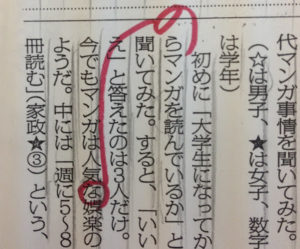 代マンガ事情を聞いてみた。
(☆は男子、★は女子、数字
は学年)
初めに「大学生になってか
らマンガを読んでいるか」と
聞いてみた。すると、「いい
え」と答えたのは3人だけ。
今でもマンガは人気な娯楽の
の
ようだ。中には「週に5〜8
冊読む」(家政★③)という、